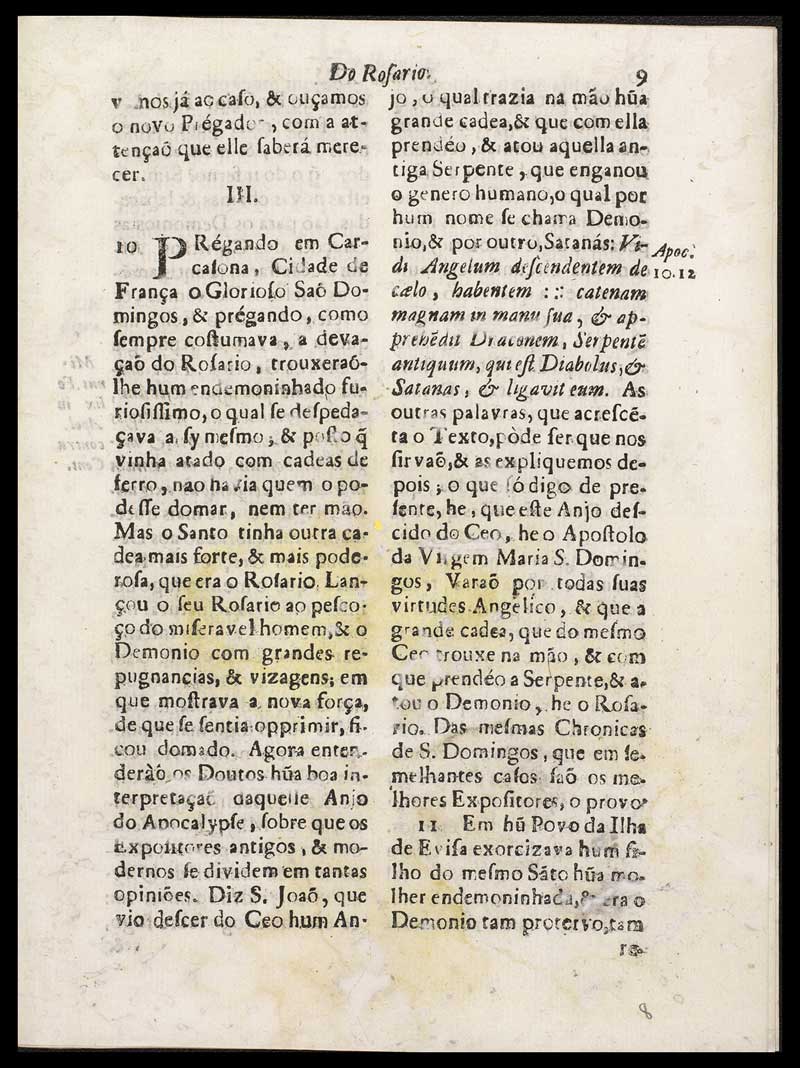 Do Roſario.
9
nos já ao caſo, & ouçamos
o novo Prégador, com a at-
tençaõ que elle ſaberá mere-
cer.
III.
10 PRégando em Car-
caſona, Cidade de
França o Glorioſo Saõ Do-
mingos, & prégando, como
ſempre coſtumava, a deva-
çaõ do Roſario, trouxeraõ-
lhe hum endemoninhado fu-
rioſiſſimo, o qual ſe deſpeda-
çava a ſy meſmo, & poſto q̃
vinha atado com cadeas de
ferro, nao havia quem o po-
deſſe domar, nem ter mão.
Mas o Santo tinha outra ca-
dea mais forte, & mais pode-
roſa, que era o Roſario. Lan-
çou o ſeu Roſario ao peſco-
ço do miſeravel homem, & o
Demonio com grandes re-
pugnancias, & vizagens; em
que moſtrava a nova força,
de que ſe ſentia opprimir, fi-
cou domado. Agora enten-
deràõ os Doutos hũa boa in-
terpretaçaõ daquelle Anjo
do Apocalypſe, ſobre que os
Expoſitores antigos, & mo-
dernos ſe dividem em tantas
opiniões. Diz S. Joaõ, que
vio deſcer do Ceo hum An-
jo, o qual trazia na mão hũa
grande cadea, & que com ella
prendéo, & atou aquella an-
tiga Serpente, que enganou
o genero humano, o qual por
hum nome ſe chama Demo-
nio, & por outro, Satanás: Vi-
di Angelum deſcendentem de
cælo, habentem : :: catenam
magnam in manu ſua, & ap-
prehẽdit Draconem, Serpentẽ
antiquum, qui eſt Diabolus, &
Satanas, & ligavit eum. As
outras palavras, que acreſcẽ-
ta o Texto, pòde ſer que nos
ſirvaõ, & as expliquemos de-
pois; o que ſó digo de pre-
ſente, he, que eſte Anjo deſ-
cido do Ceo, he o Apoſtolo
da Virgem Maria S. Domin-
gos, Varaõ por todas ſuas
virtudes Angélico, & que a
grande cadea, que do meſmo
Ceo trouxe na mão, & com
que prendéo a Serpente, & a-
tou o Demonio, he o Roſa-
rio. Das meſmas Chronicas
de S. Domingos, que em ſe-
melhantes caſos ſaõ os me-
lhores Expoſitores, o provo.
11 Em hũ Povo da Ilha
de Eviſa exorcizava hum fi-
lho do meſmo Sãto hũa mo-
lher endemoninhada, & era o
Demonio tam protervo, tam
Apoc.
10.12
8